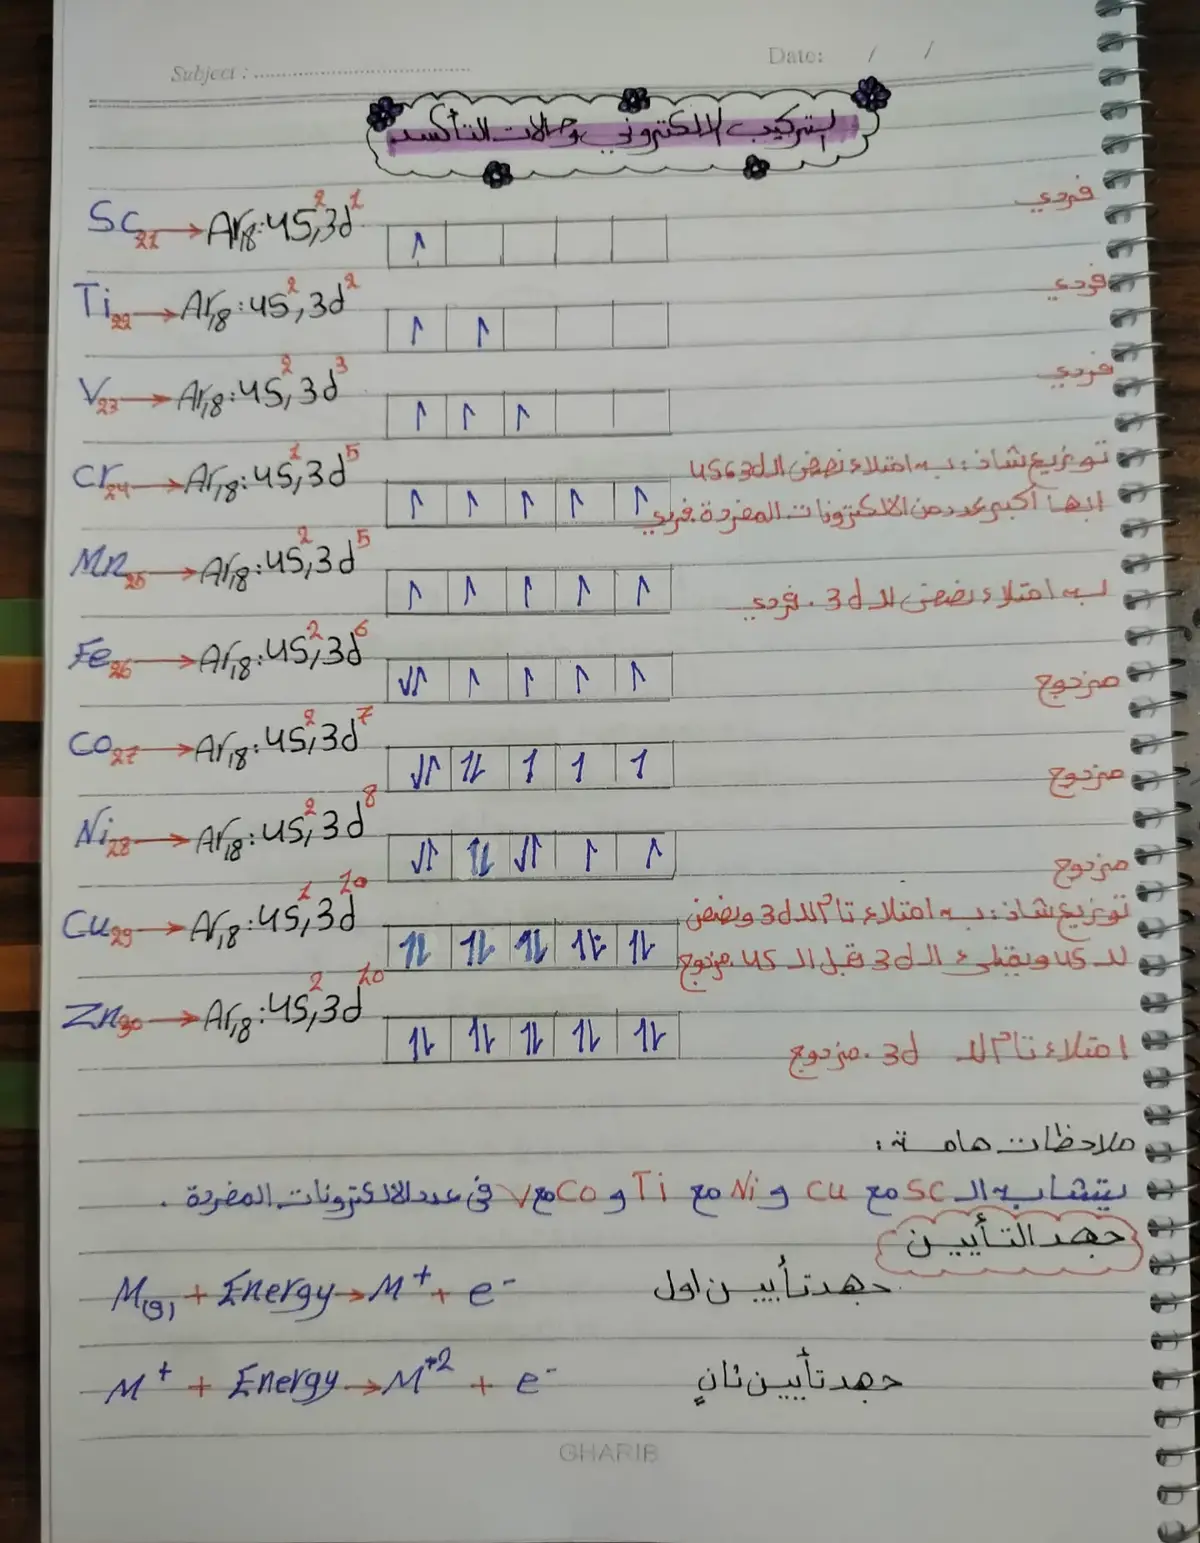 Subject : Date: / /
التركيب الالكتروني وحالات التأكسد
Sc₂₁ → Ar₁₈: 4S², 3d¹ فردي
Ti₂₂ → Ar₁₈: 4S², 3d² فردي
V₂₃ → Ar₁₈: 4S², 3d³ فردي
Cr₂₄ → Ar₁₈: 4S¹, 3d⁵ توزيع شاذ: به امتلاء نصفى الـ 3d و 4S
↿ ↿ ↿ ↿ ↿ أكبر عدد من الالكترونات المفردة. فردي
Mn₂₅ → Ar₁₈: 4S², 3d⁵
به امتلاء نصفى لل 3d . فردي
Fe₂₆ → Ar₁₈: 4S², 3d⁶ مزدوج
Co₂₇ → Ar₁₈: 4S², 3d⁷ مزدوج
Ni₂₈ → Ar₁₈: 4S², 3d⁸ مزدوج
Cu₂₉ → Ar₁₈: 4S¹, 3d¹⁰ توزيع شاذ: به امتلاء تام لل 3d ونصفى
لل 4S الـ 3d قبل الـ 4S. مزدوج
Zn₃₀ → Ar₁₈: 4S², 3d¹⁰
امتلاء تام لل 3d . مزدوج
ملاحظات هامة :
يتشابه الـ Sc مع Cu و Ni مع Ti و Co مع V في عدد الالكترونات المفردة .
جهد التأيين
M(g) + Energy → M⁺ + e⁻ جهد تأيين اول
M⁺ + Energy → M⁺² + e⁻ جهد تأيين ثانٍ
GHARIB